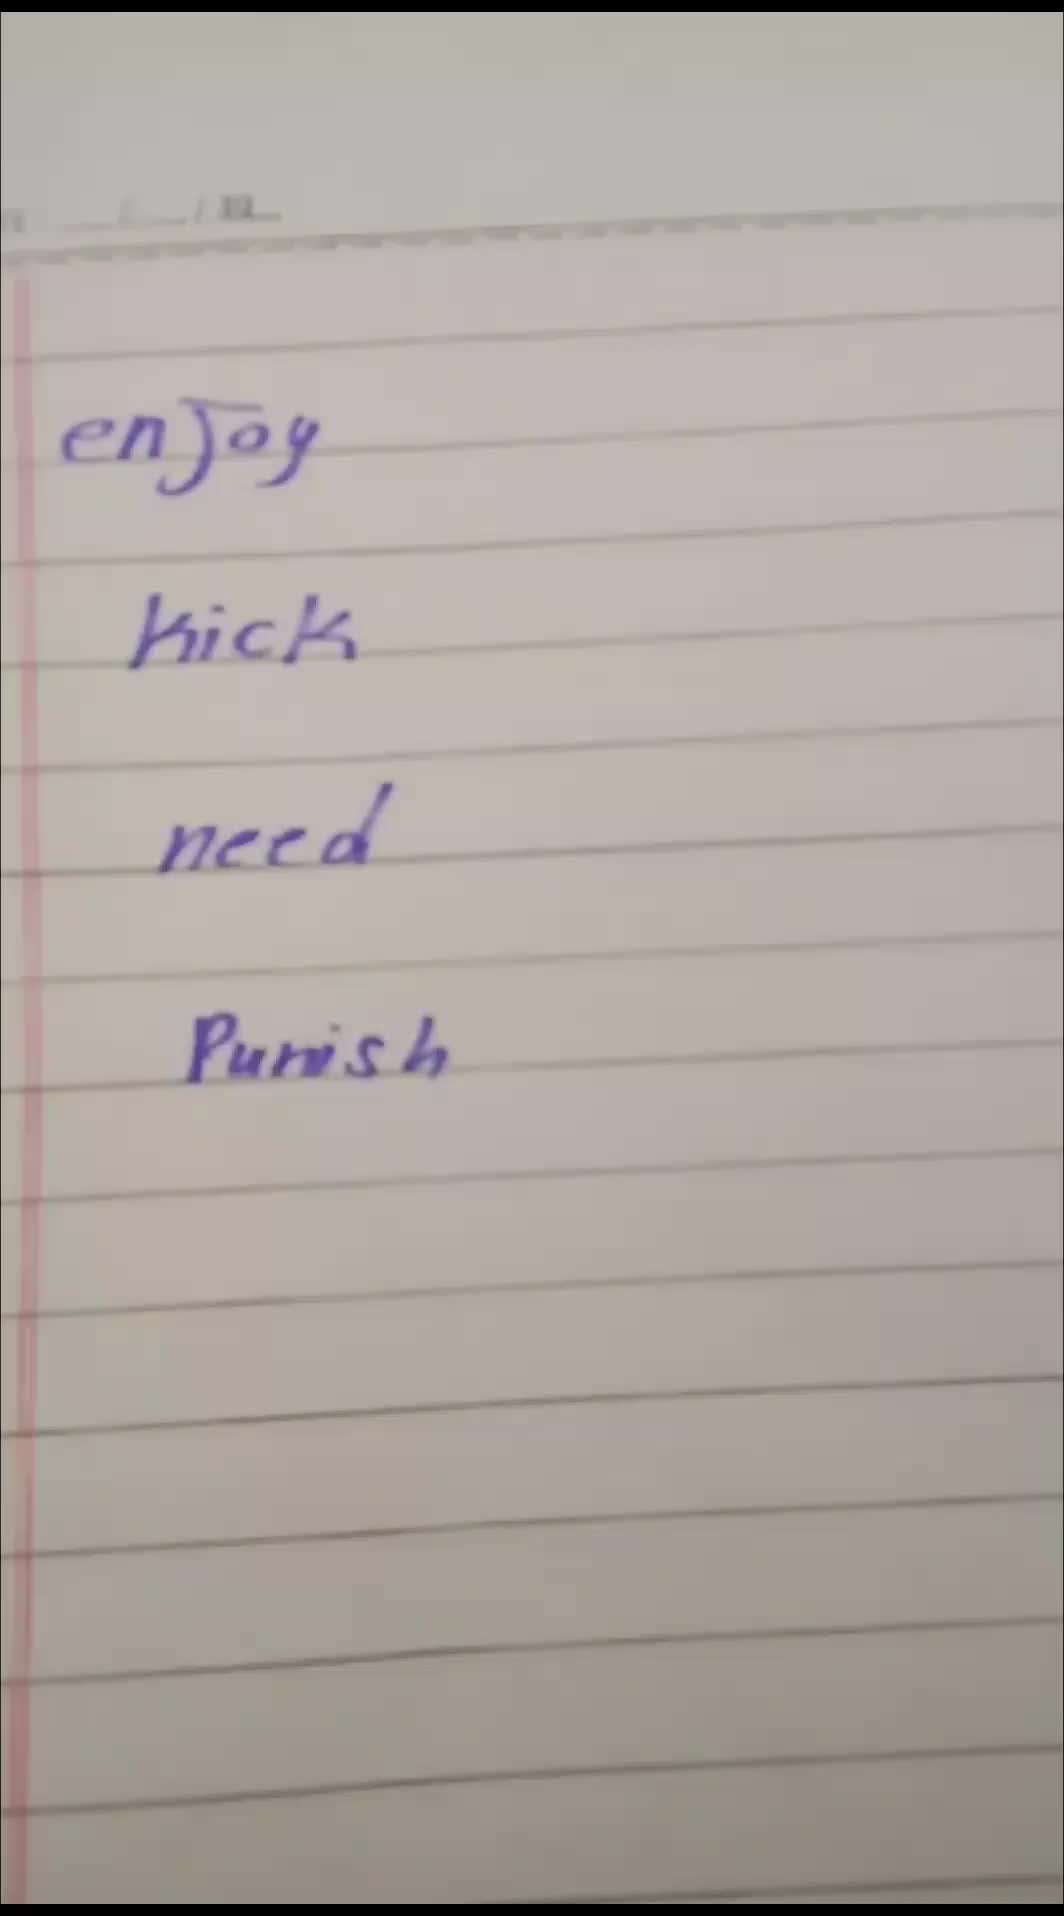 enjoy
kick
need
Punish